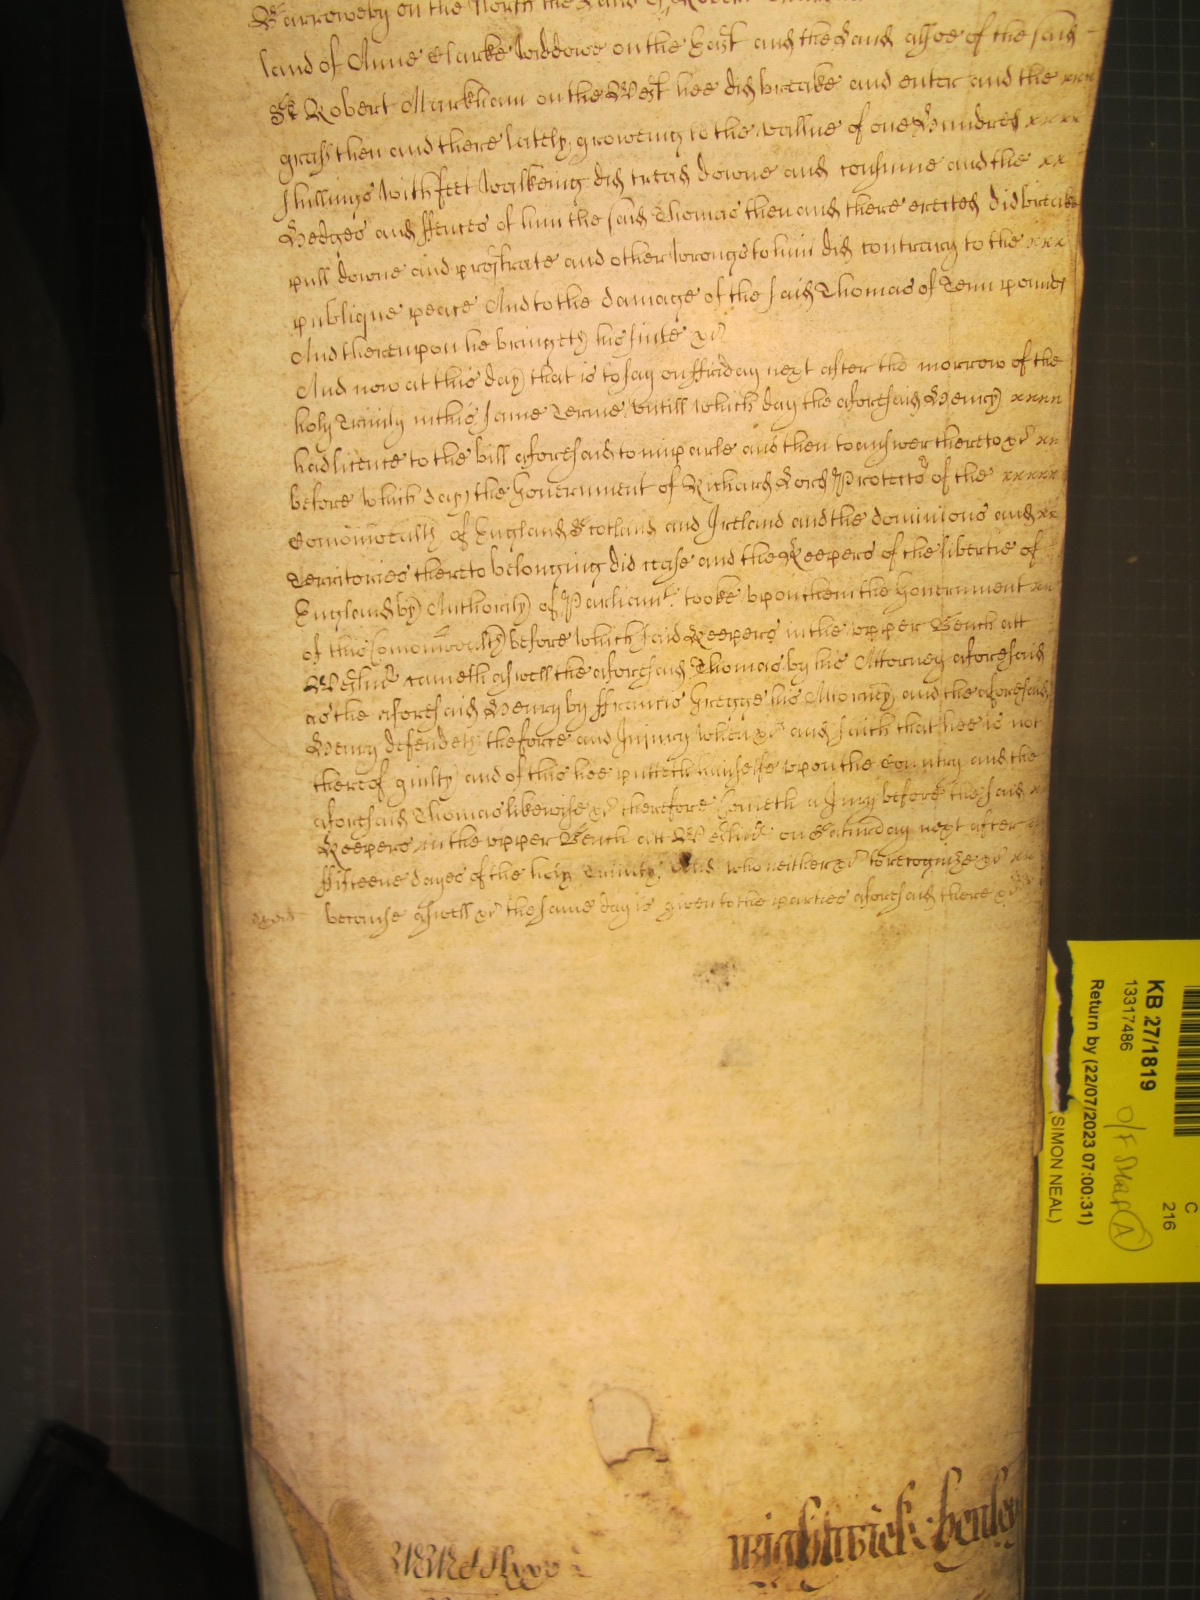 Barroweby on the North the Land of Sr Robert
land of Anne Clarke Widdowe on the East and the Land alsoe of the said
Sr Robert Markham on the West hee did breake and enter and the xxx
grass then and there lately growеing to the vallue of one Hundred xxxx
shillings with feet walkeing did tread downe and consume and the xx
Hedges and ffences of him the said Thomas then and there erected did breake
pull downe and prostrate and other wrongs to him did contrary to the xxx
publique peace And to the damage of the said Thomas of Tenn pounds
And thereupon he bringeth his suite &c
And now at this day that is to say on ffriday next after the morrow of the
holy Trinity in this same Terme untill which day the aforesaid Henry xxxx
had licence to the bill aforesaid to imparle and then to answer thereto &c xx
before which day the Government of Richard Lord Protector of the xxxxx
Comonwealth of England Scotland and Ireland and the dominions and xx
Territories thereto belonging did cease and the Keepers of the libertie of
England by Authority of Parliamt. tooke upon them the Government xx
of this Comonwealth before which said Keepers in the upper Bench att
Westmr cometh aswell the aforesaid Thomas by his Attorney aforesaid
as the aforesaid Henry by ffrancis Gregge his Attorney and the aforesaid
Henry defendeth the force and Injury when &c and saith that hee is not
thereof guilty and of this hee putteth himselfe upon the Country and the
aforesaid Thomas likewise &c therefore Cometh a Jury before the said
Keepers in the upper Bench att Westmr on Saturday next after
ffifteene dayes of the holy Trinity And who neither &c to recognize &c xx
because aswell &c the same day is given to the parties aforesaid there &c
Wightwick Henley
KB 27/1819
13317486
Return by (22/07/2023 07:00:31)
(SIMON NEAL)
C
216
O/F Map A